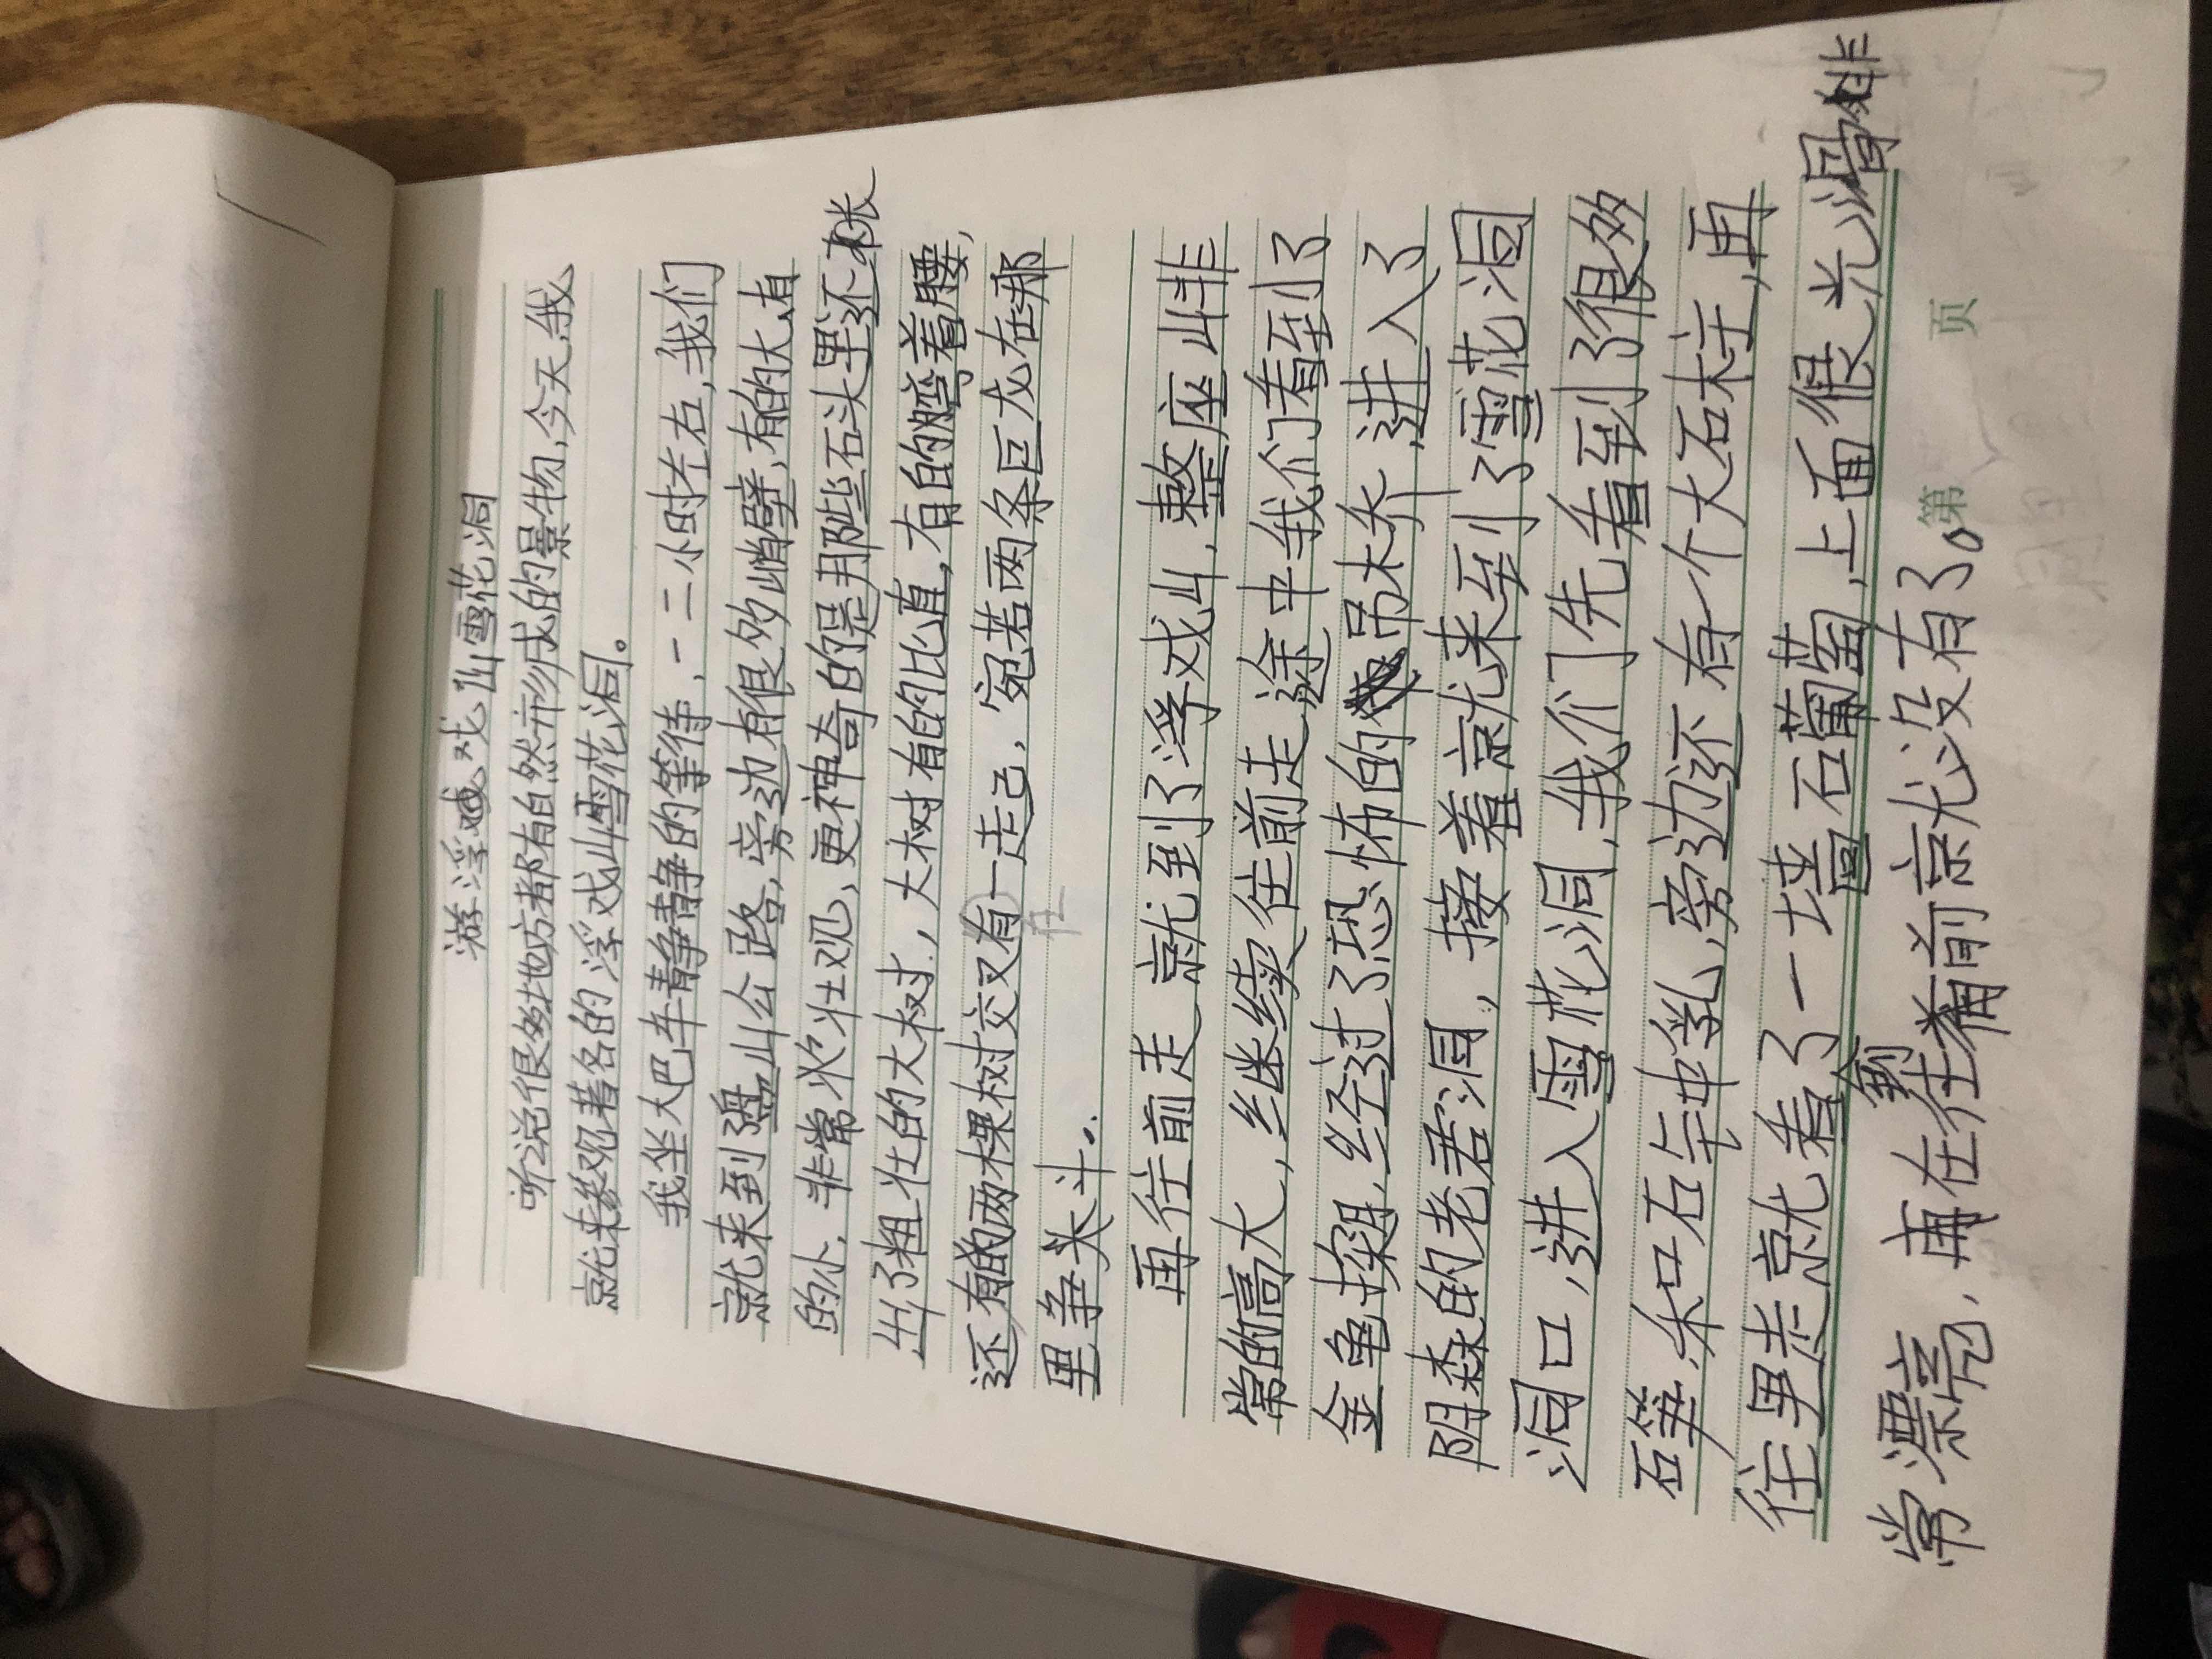 游浮戏山雪花洞
听说很多地方都有自然形成的景物,今天,我
就来参观著名的浮戏山雪花洞。
我坐大巴车静静的等待,一二小时左右,我们
就来到盘山公路,旁边有很多峭壁,有的大,有
的小,非常状壮观,更神奇的是那些石头里还长
出了粗壮的大树,大树有的比直,有的弯着腰,
还有的两棵树交叉有一起,宛若两条巨龙在那
在
里争头斗...
再往前走,就到了浮戏山,整座山非
常的高大,继续往前走,途中我们看到了
金龟探阴,经过了恐怖的吊桥,进入了
阴森的老君洞,接着就来到了雪花洞
洞口,进入雪花洞,我们先看到了很多
石笋和石钟乳,旁边还有一个大石柱,再
往里走就看到了一墙石葡萄,上面很光滑非
常漂亮,再在往前就没有了。
第 页